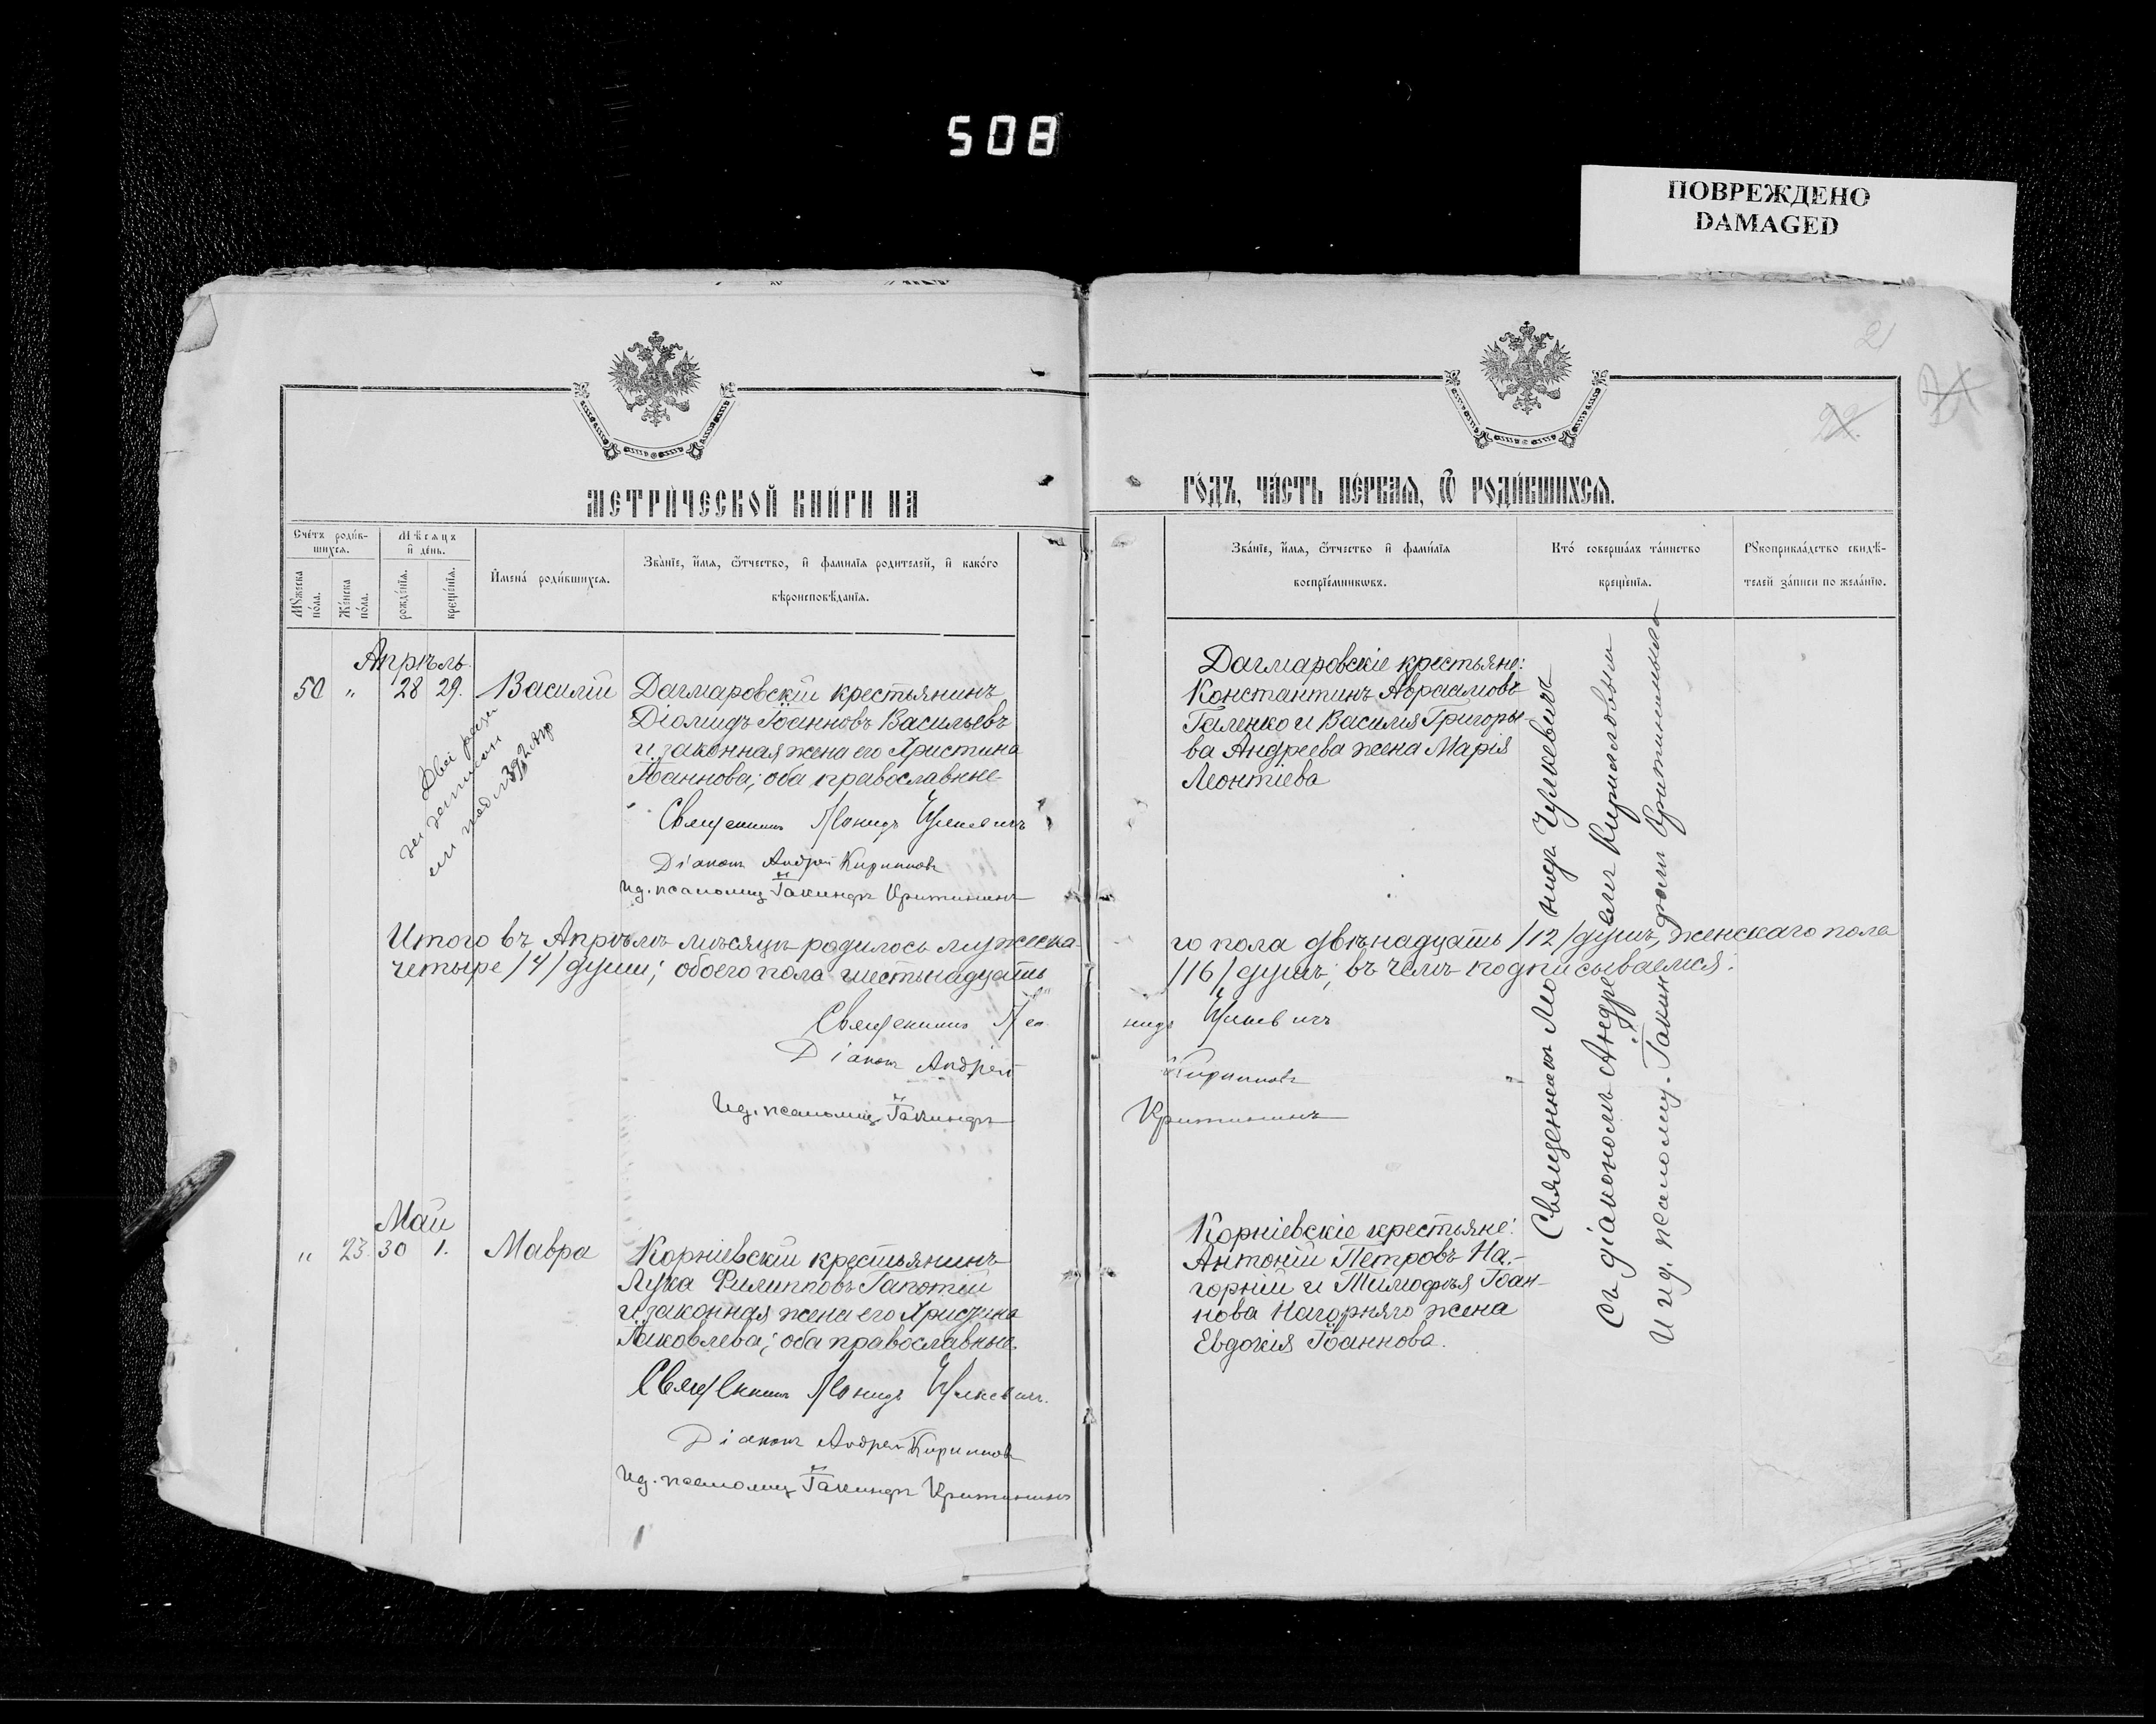 508
ПОВРЕЖДЕНО
DAMAGED
21
22.
МЕТРИ́ЧЕСКОЙ КНИ́ГИ НА
ГО́ДЪ, ЧА́СТЬ ПЕ́РВАѦ, Ѿ РОДИ́ВШИХСѦ.
Сче́тъ роди́в-
шихсѧ.
Мѣсѧцъ
и҆ де́нь.
Мꙋ́жеска
по́ла.
Же́нска
по́ла.
рожде́нїѧ.
креще́нїѧ.
И҆мена̀ роди́вшихсѧ.
Зва́нїе, и҆́мѧ, ѻ҆́тчество, и҆ фами́лїѧ роди́телей, и҆ како́гѡ
вѣроисповѣ́данїѧ.
Зва́нїе, и҆́мѧ, ѻ҆́тчество и҆ фами́лїѧ
воспрїе́мникѡвъ.
Кто́ соверша́лъ та́инство
креще́нїѧ.
Рꙋкоприкла́дство свидѣ́-
телей за́писи по жела́нїю.
Апрѣль
50 " 28 29. Василій
Дагмаровскій крестьянинъ
Діомидъ Іоанновъ Васильевъ
и законная жена его Христина
Іоаннова; оба православные
Священникъ Леонидъ Чулкевичъ
Діаконъ Андрей Кирилловъ
Ид. псаломщ. Іакинфъ Критининъ
Дагмаровскіе крестьяне:
Константинъ Авраамовъ
Галенко и Василія Григорье
ва Андреева жена Марія
Леонтіева
Священникъ Леонидъ Чулкевичъ
съ діакономъ Андреемъ Кирилловымъ
И ид. псаломщ. Іакинфомъ Критининымъ
Итого въ Апрѣлѣ мѣсяцѣ родилось мужеска
го пола двѣнадцать /12/ душъ, женскаго пола
четыре /4/ души; обоего пола шестьнадцать
/16/ душъ; въ чемъ подписываемся:
Священникъ Лео
нидъ Чулкевичъ
Діаконъ Андрей
Кирилловъ
Ид. псаломщ. Іакинфъ
Критининъ
Май
" 23. 30 1. Мавра
Корніевскій крестьянинъ
Лука Филипповъ Гапотій
и законная жена его Христина
Іаковлева; оба православные.
Священникъ Леонидъ Чулкевичъ.
Діаконъ Андрей Кирилловъ
Ид. псаломщ. Іакинфъ Критининъ
Корніевскіе крестьяне:
Антоній Петровъ На-
горній и Тимофѣя Іоан-
нова Нагорняго жена
Евдокія Іоаннова.